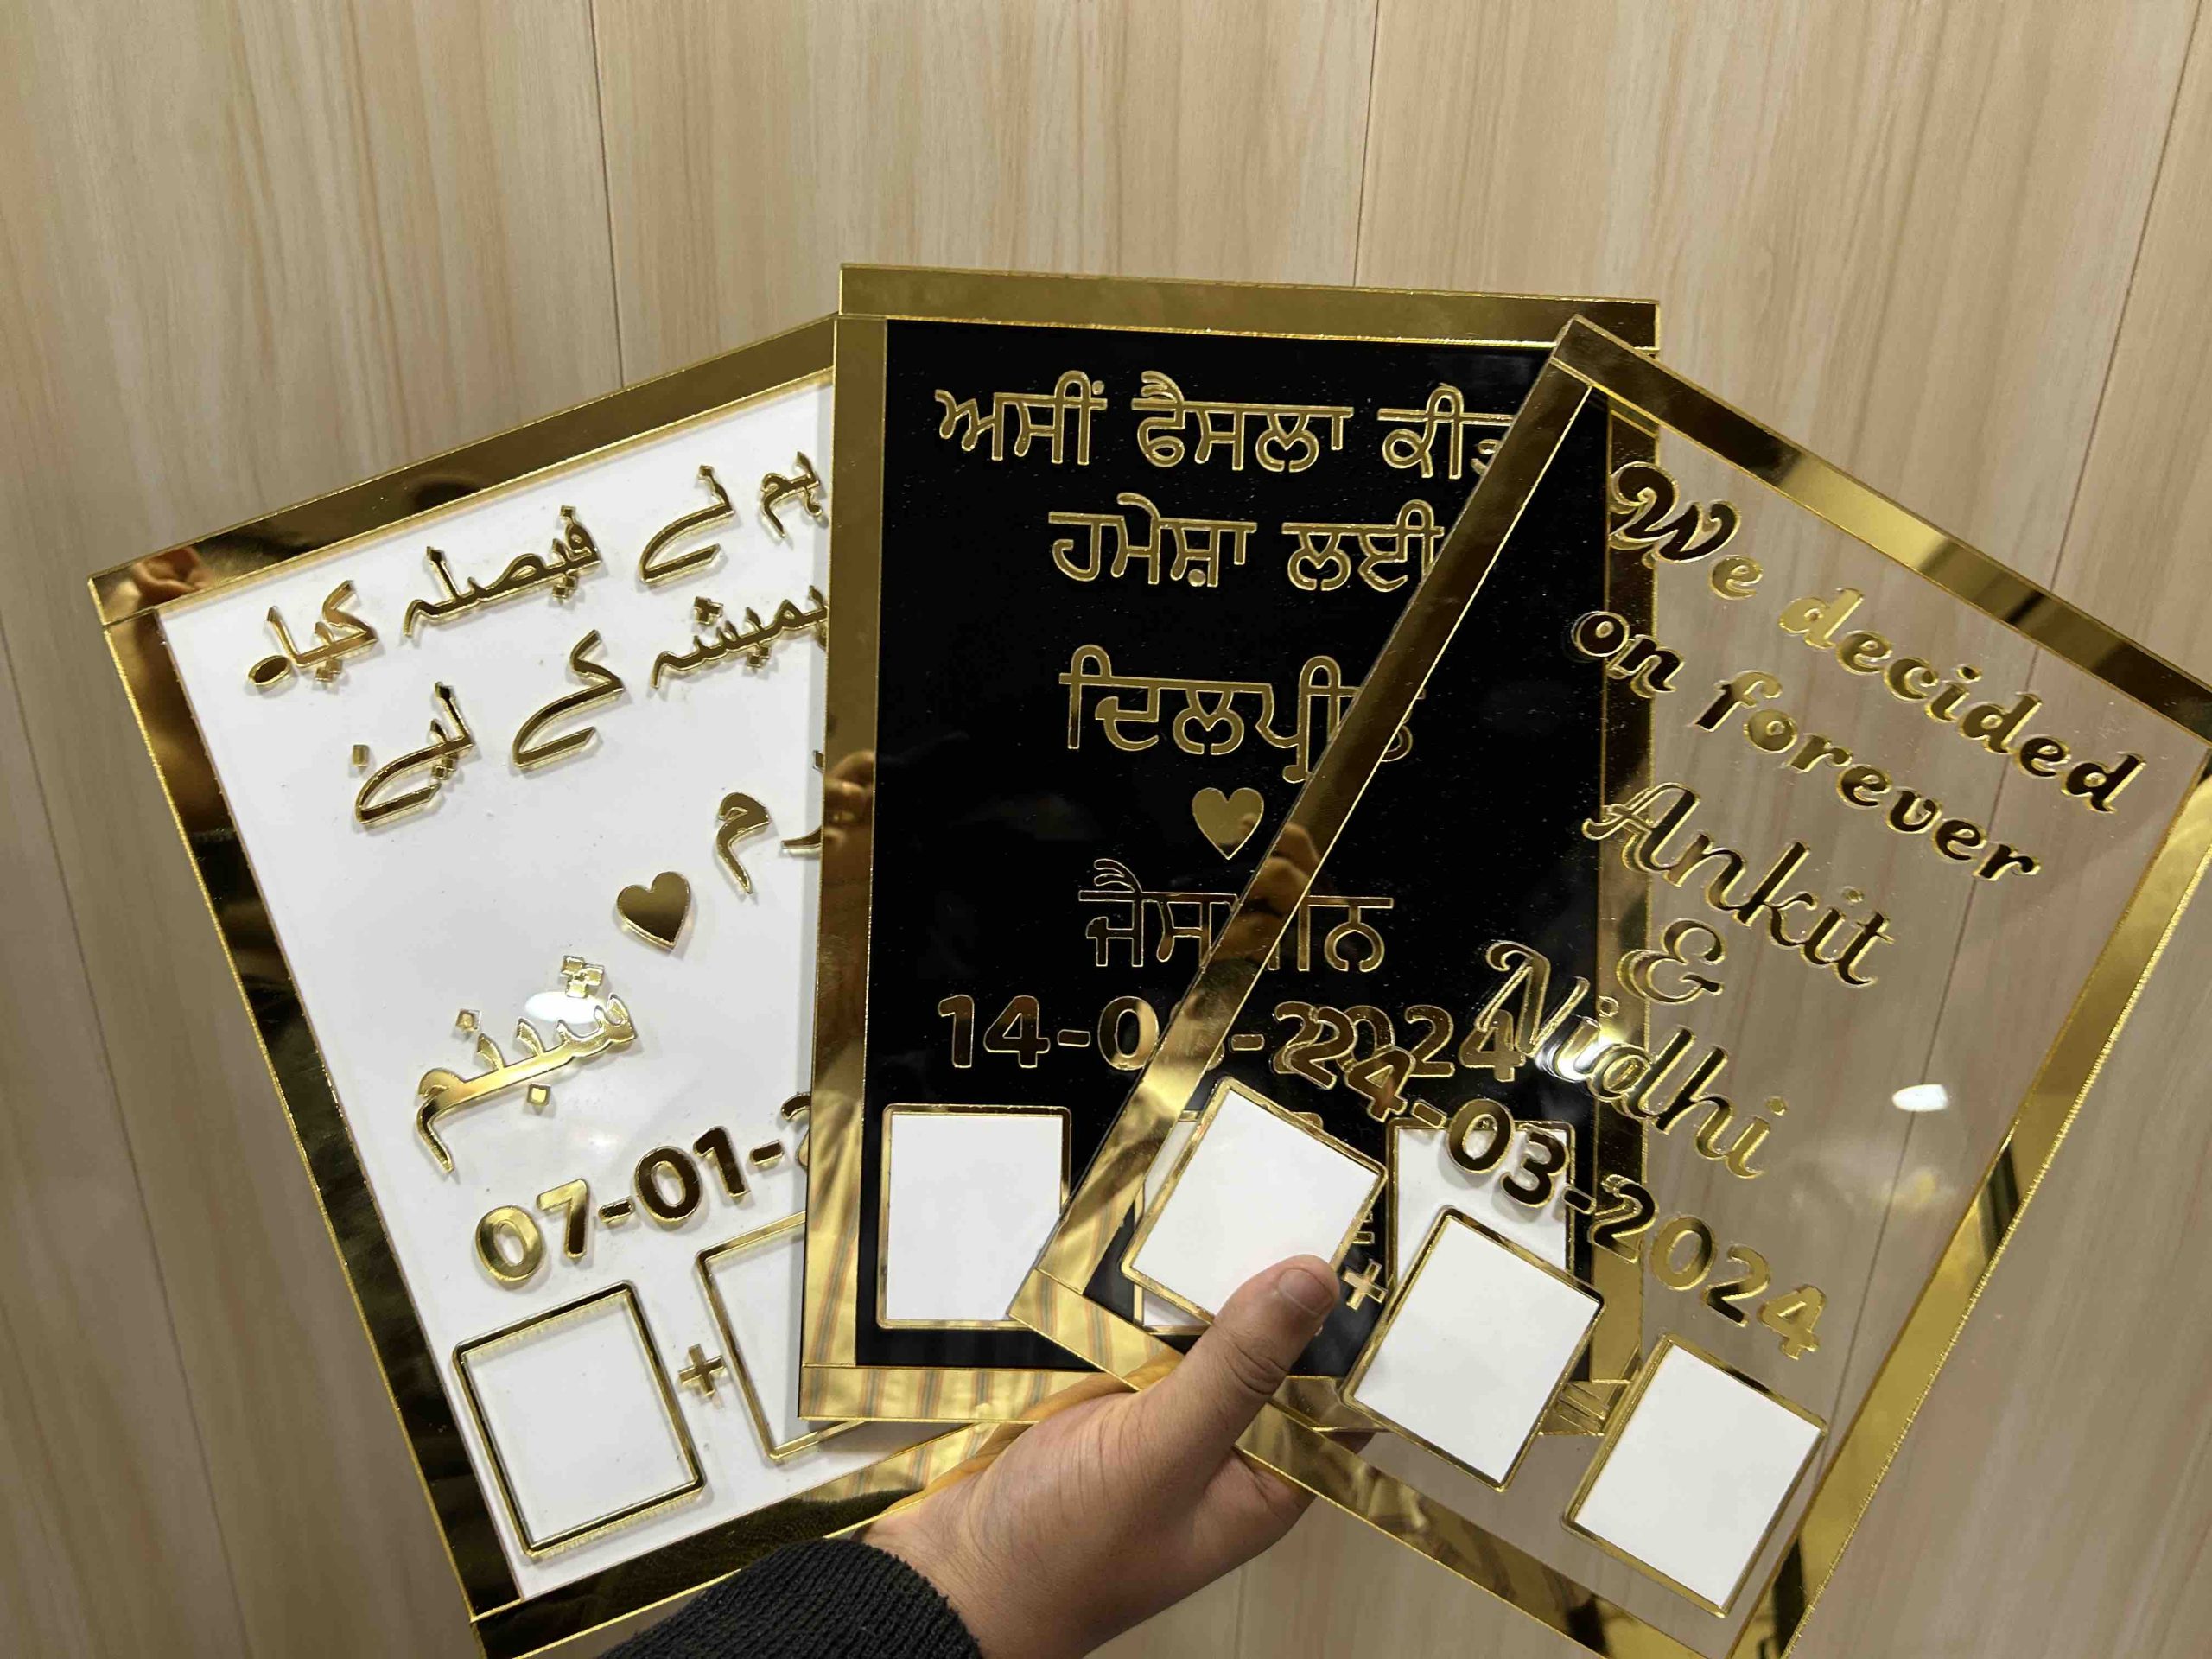 ہم نے فیصلہ کیا۔
ہمیشہ کے لیے
شبنم
07-01-
+
ਅਸੀਂ ਫੈਸਲਾ
ਹਮੇਸ਼ਾ ਲਈ
ਦਿਲਪ੍ਰੀਤ
ਜੈਸਮੀਨ
We decided
on forever
Ankit
&
Nidhi
24-03-2024
+